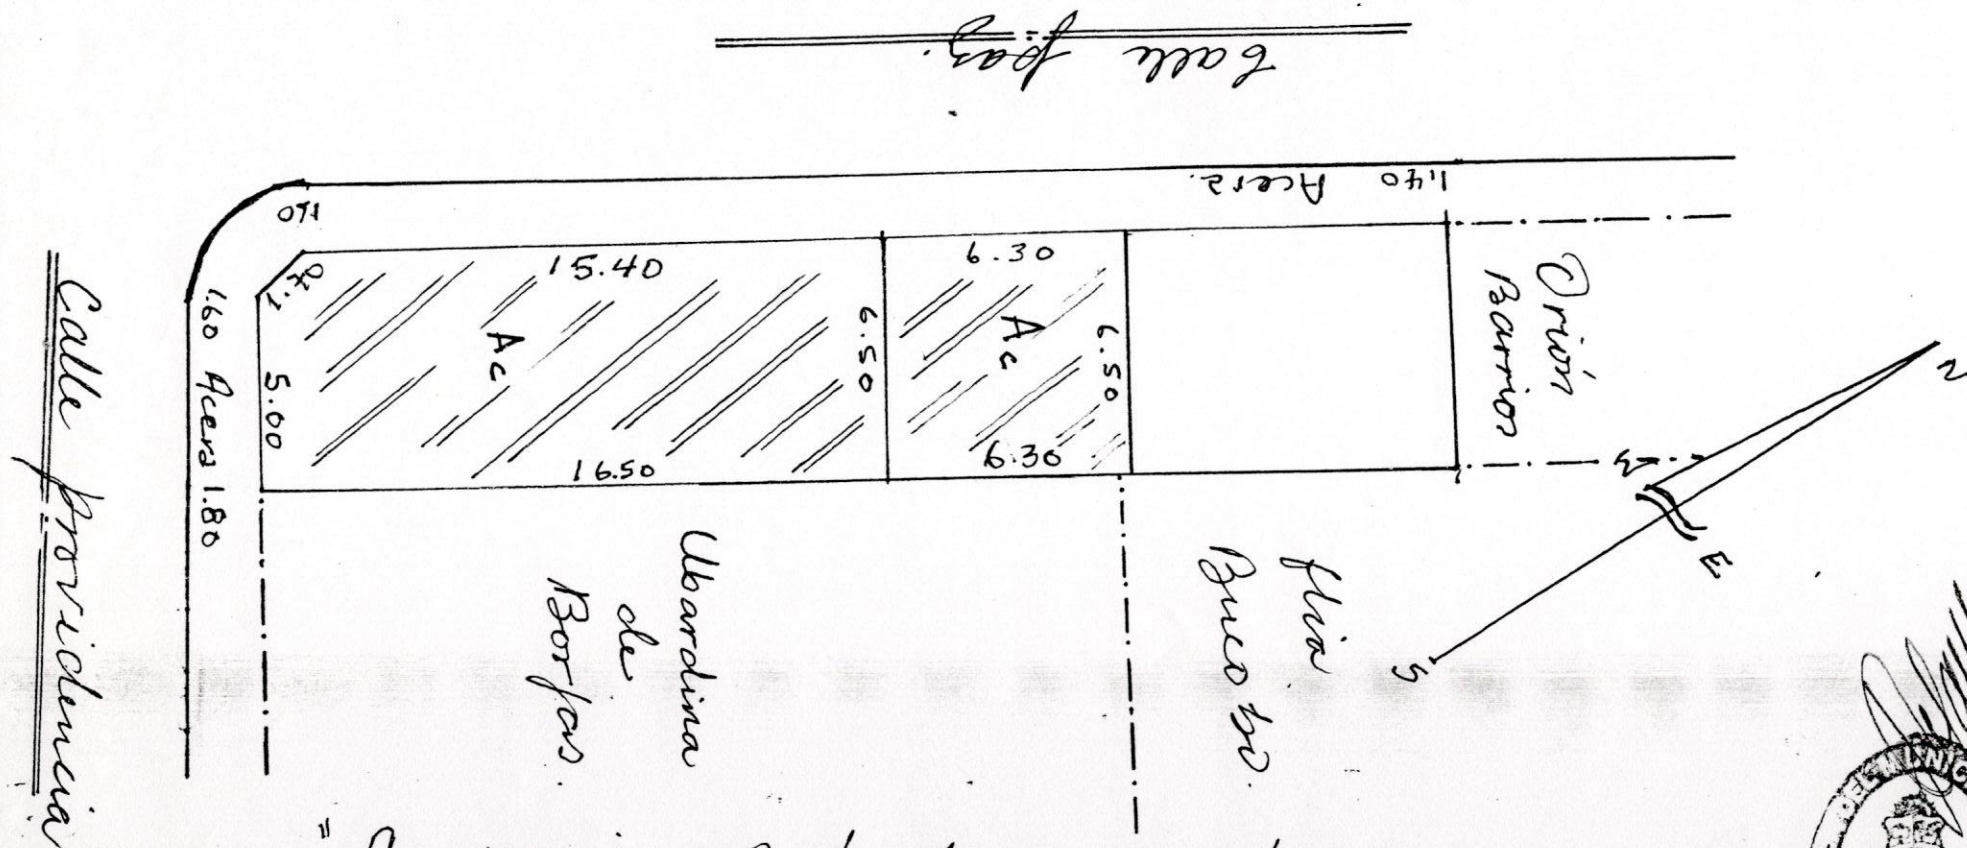 Calle paz.
1.40 Acera.
1.60
1.70
15.40
6.30
Ac
6.50
Ac
6.50
5.60
16.50
6.30
1.60 Acera 1.80
Calle providencia
Orión
Barrios
N
E
S
Ubardina
de
Borjas.
flia.
Bueso